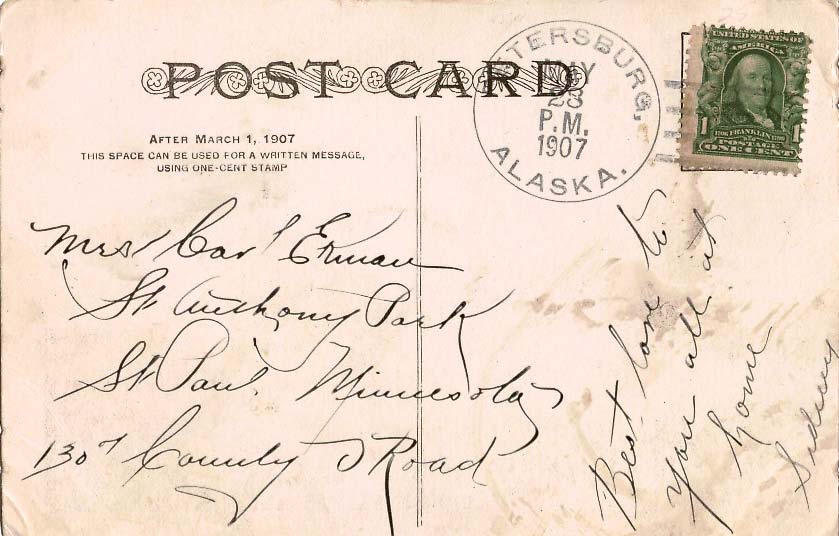 POST CARD
AFTER MARCH 1, 1907
THIS SPACE CAN BE USED FOR A WRITTEN MESSAGE,
USING ONE-CENT STAMP
TERSBURG,
ALASKA.
23
P.M.
1907
UNITED STATES OF
AMERICA
1 FRANKLIN 1
POSTAGE
ONE CENT
Mrs Carl Ekman
St Anthony Park
St Paul Minnesota
1307 County Road
Best love to
you all at
home
Sidney